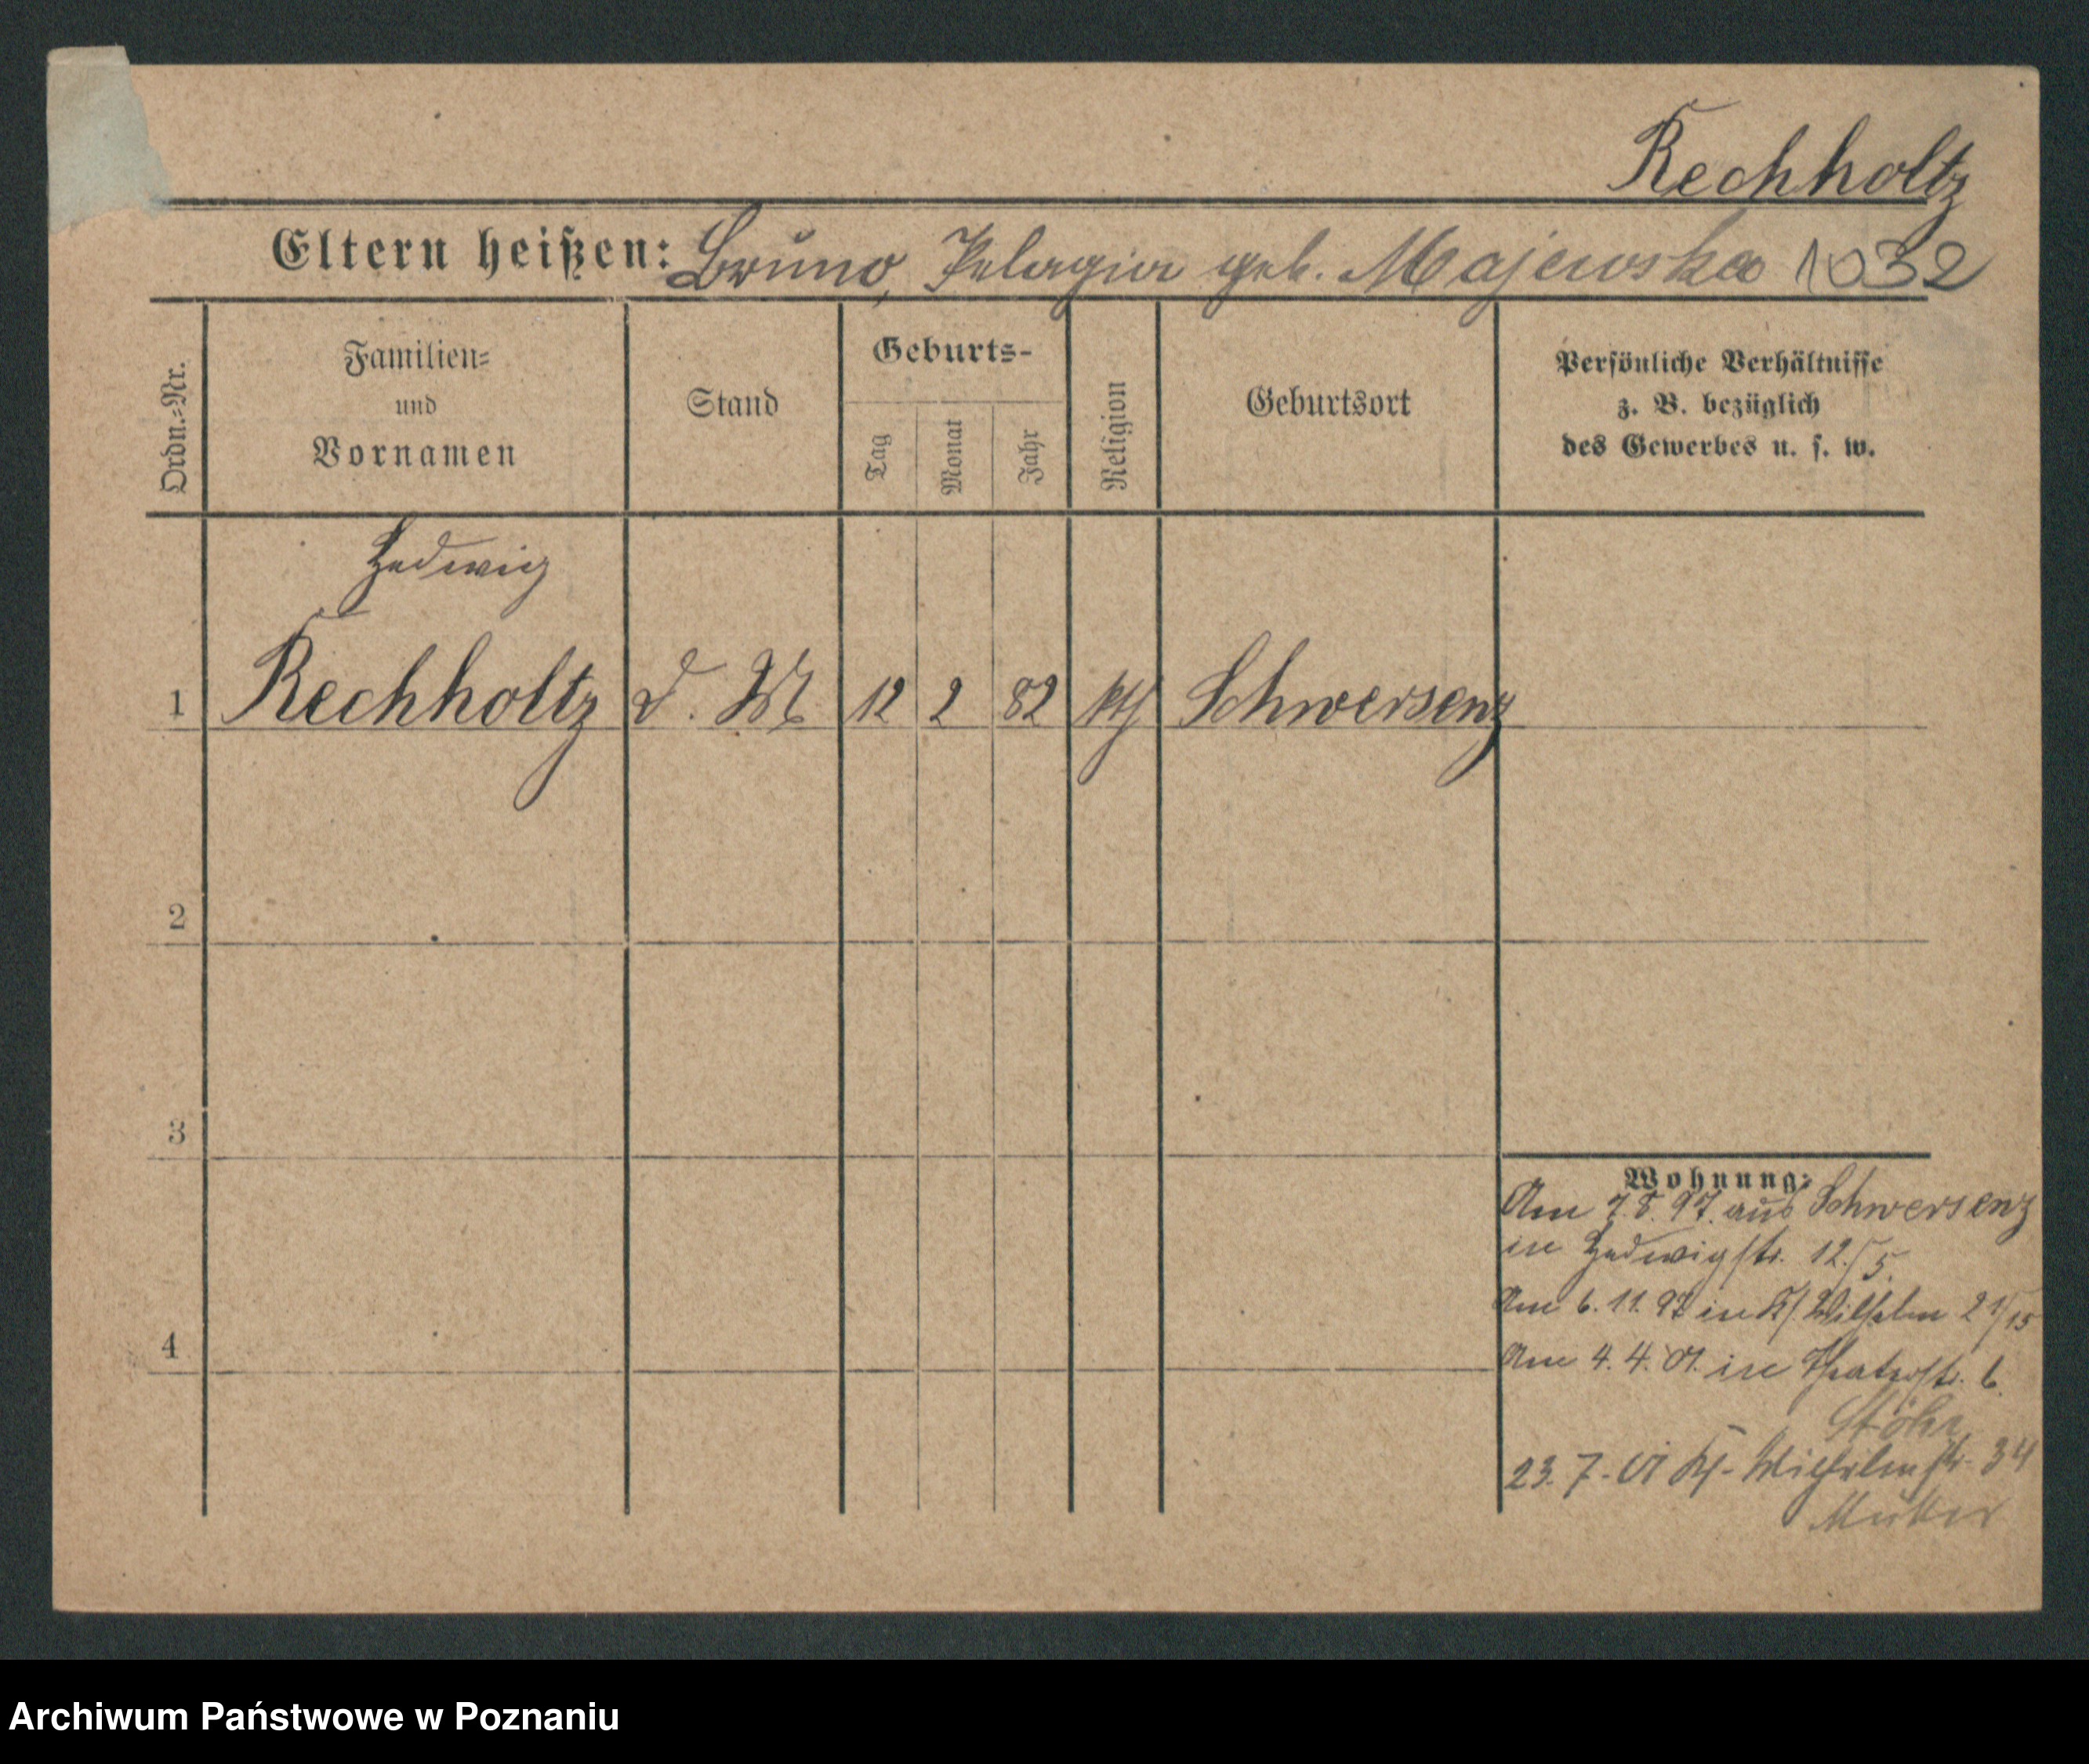 Rechholtz
Eltern heißen: Bruno, Pelagia geb. Majewska 1032
Ordn.-Nr.
Familien-
und
Vornamen
Stand
Geburts-
Tag
Monat
Jahr
Religion
Geburtsort
Persönliche Verhältnisse
z. B. bezüglich
des Gewerbes u. s. w.
Hedwig
1 Rechholtz D. M 12 2 82 kth Schwersenz
2
3
4
Wohnung:
Am 7.8.97. aus Schwersenz
in Hedwigstr. 12./5.
Am 6.11.97 in Kl. Wilhelm 21/15
Am 4.4.01. in Theaterstr. 6.
Stöhr
23.7.01 Kl. Wilhelmstr. 34
Mutter
Archiwum Państwowe w Poznaniu